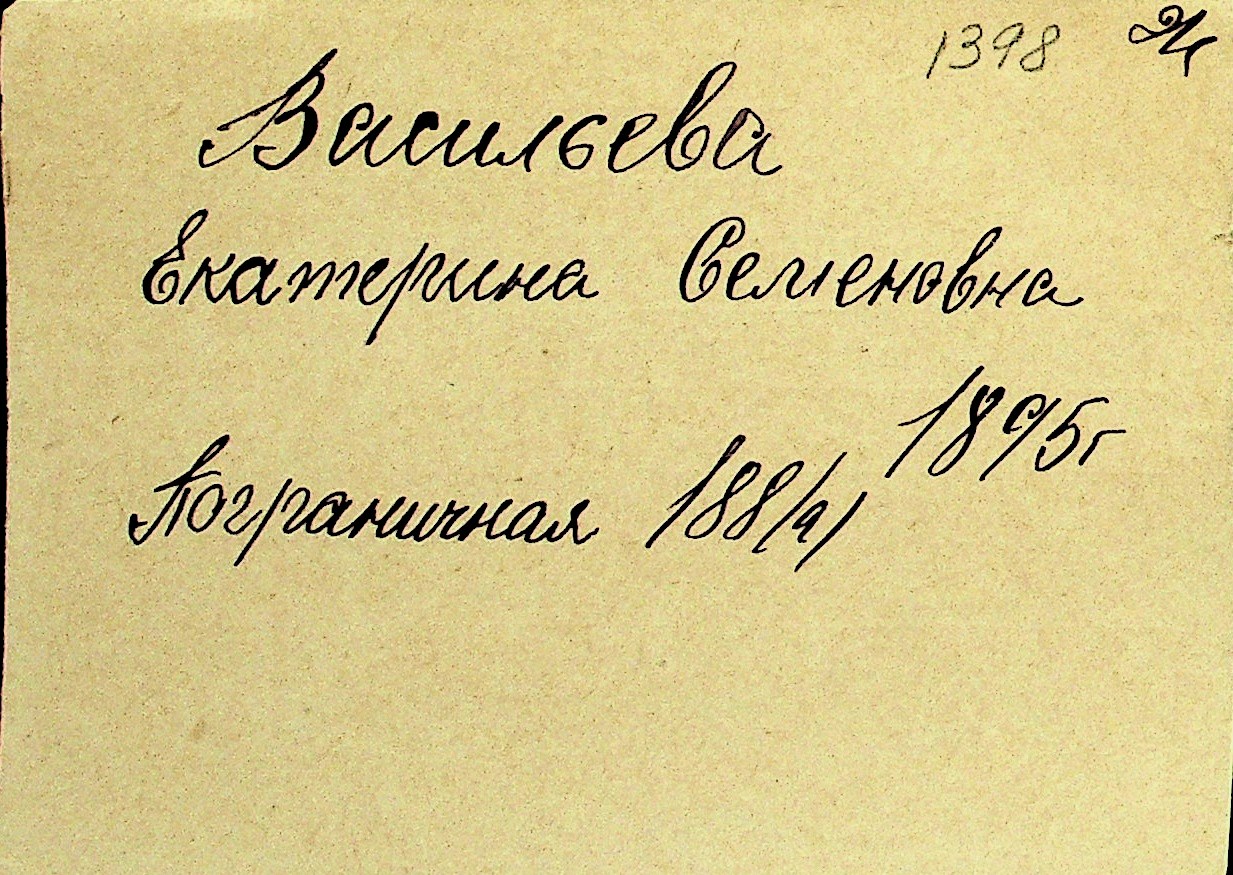 1398
Васильева
Екатерина Семеновна
1895г
Пограничная 188/